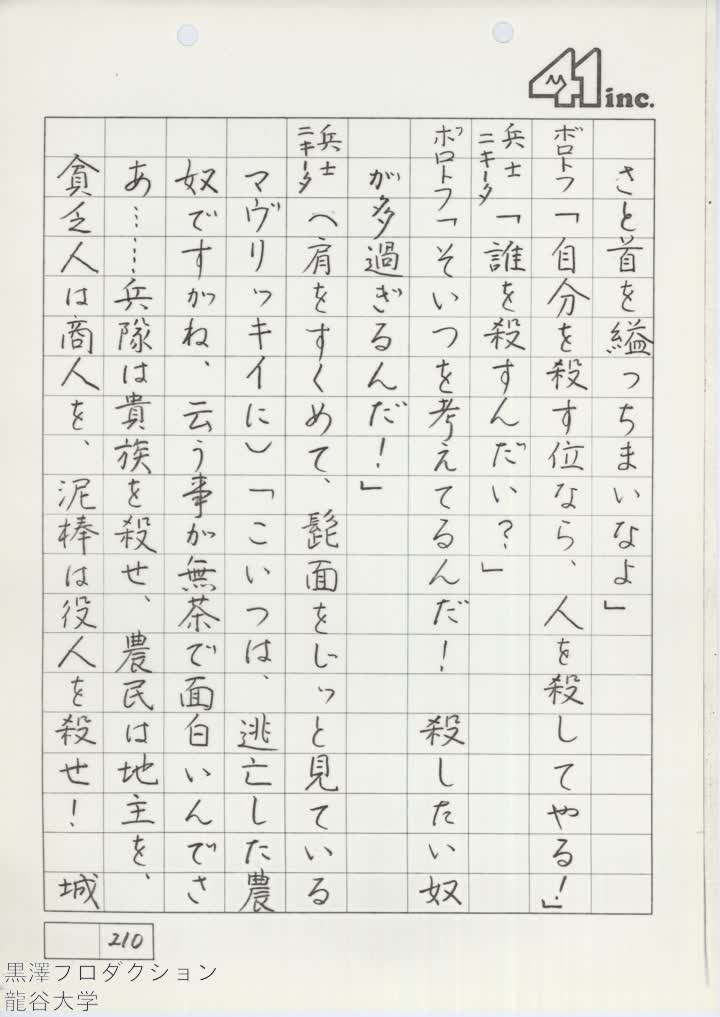 41 inc.
さと首を縊っちまいなよ」
ボロトフ「自分を殺す位なら、人を殺してやる!」
兵士ニキータ「誰を殺すんだい?」
ボロトフ「そいつを考えてるんだ! 殺したい奴
が多過ぎるんだ!」
兵士ニキータ(肩をすくめて、髭面をじっと見ている
マヴリッキイに)「こいつは、逃亡した農
奴ですがね、云う事が無茶で面白いんでさ
あ……兵隊は貴族を殺せ、農民は地主を、
貧乏人は商人を、泥棒は役人を殺せ! 城
210
黒澤プロダクション
龍谷大学